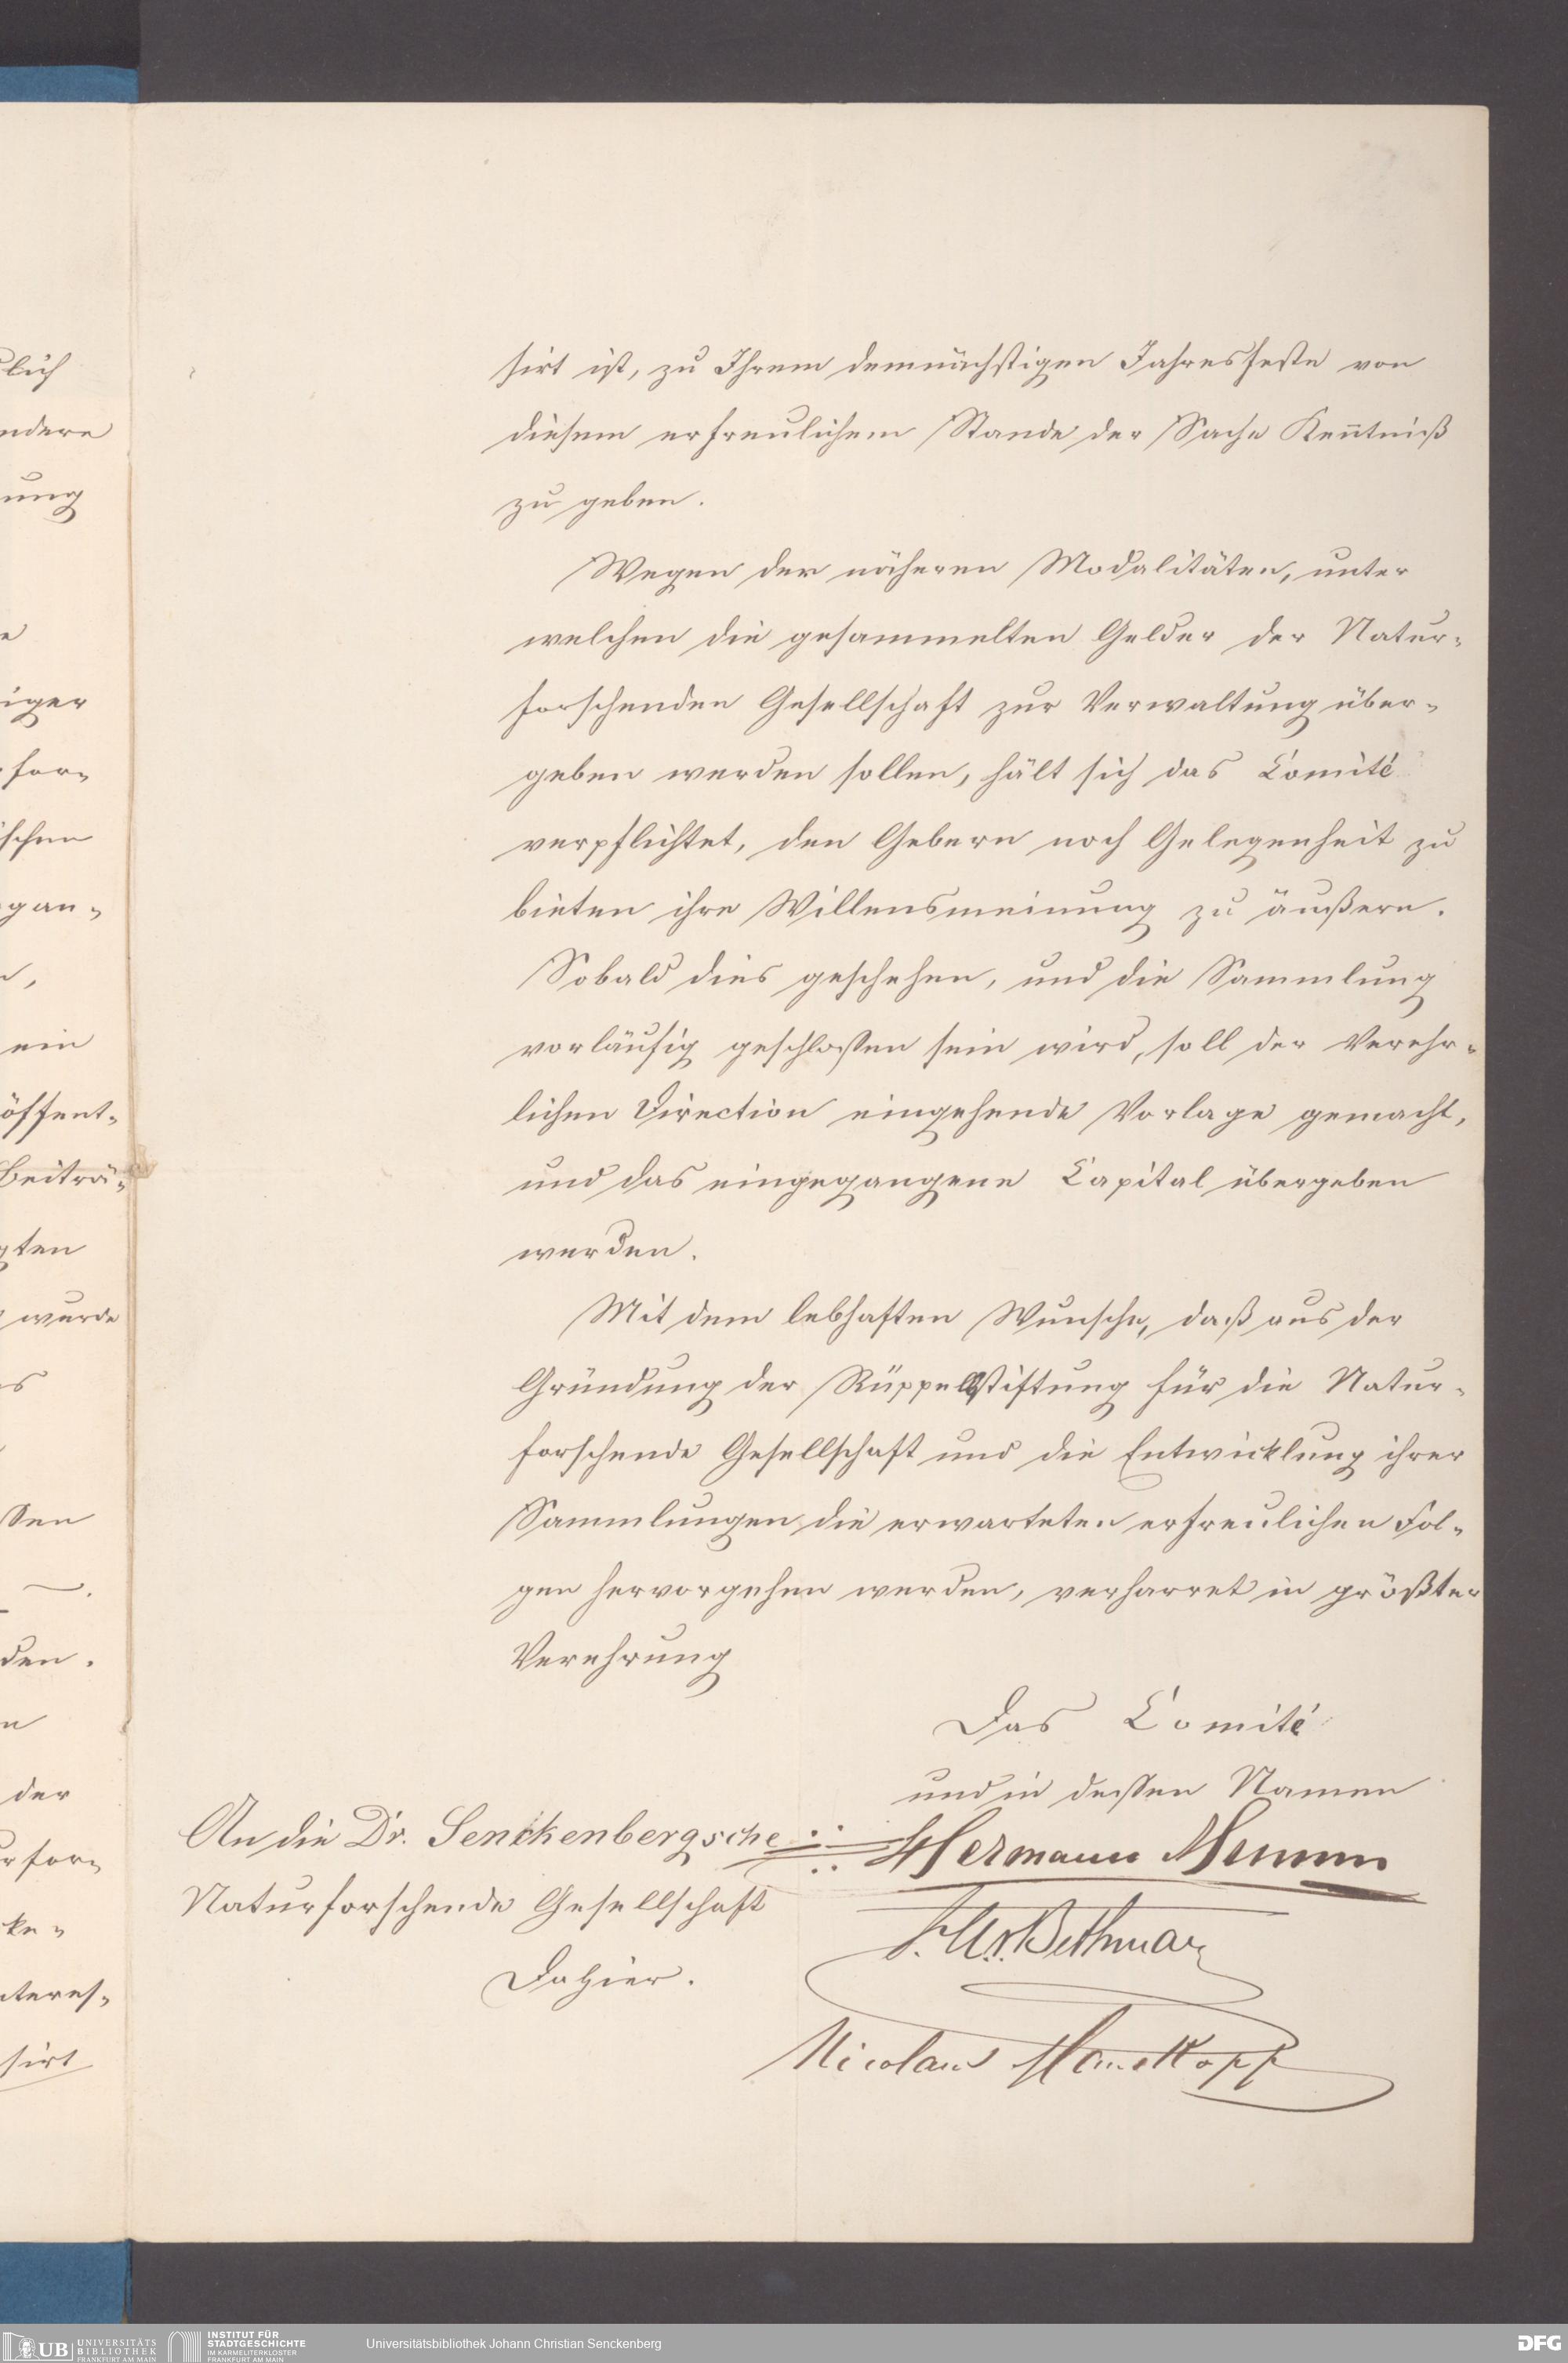 lich
ndere
ung
iger
for-
ischen
gan-
ein
öffent-
Beiträ-
gten
wurde
ssen
den.
der
rfor-
cke-
nteres-
sirt
sirt ist, zu Ihrem demnächstigen Jahresfeste von
diesem erfreulichem Stande der Sache Kenntniß
zu geben.
Wegen der näheren Modalitäten, unter
welchen die gesammelten Gelder der Natur-
forschenden Gesellschaft zur Verwaltung über-
geben werden sollen, hält sich das Comité
verpflichtet, den Gebern noch Gelegenheit zu
bieten ihre Willensmeinung zu äußern.
Sobald dies geschehen, und die Sammlung
vorläufig geschlossen sein wird, soll der Verehr-
lichen Direction eingehende Vorlage gemacht,
und das eingegangene Capital übergeben
werden.
Mit dem lebhaften Wunsche, daß aus der
Gründung der Rüppellstiftung für die Natur-
forschende Gesellschaft und die Entwicklung ihrer
Sammlungen die erwarteten erfreulichen Fol-
gen hervorgehen werden, verharret in größter
Verehrung
Das Comité
und in dessen Namen
Hermann Mumm
Bethmann
Nicolaus Manskopf
An die Dr. Senckenbergsche
Naturforschende Gesellschaft
Dahier.
UB UNIVERSITÄTS
BIBLIOTHEK
FRANKFURT AM MAIN
INSTITUT FÜR
STADTGESCHICHTE
IM KARMELITERKLOSTER
FRANKFURT AM MAIN
Universitätsbibliothek Johann Christian Senckenberg
DFG